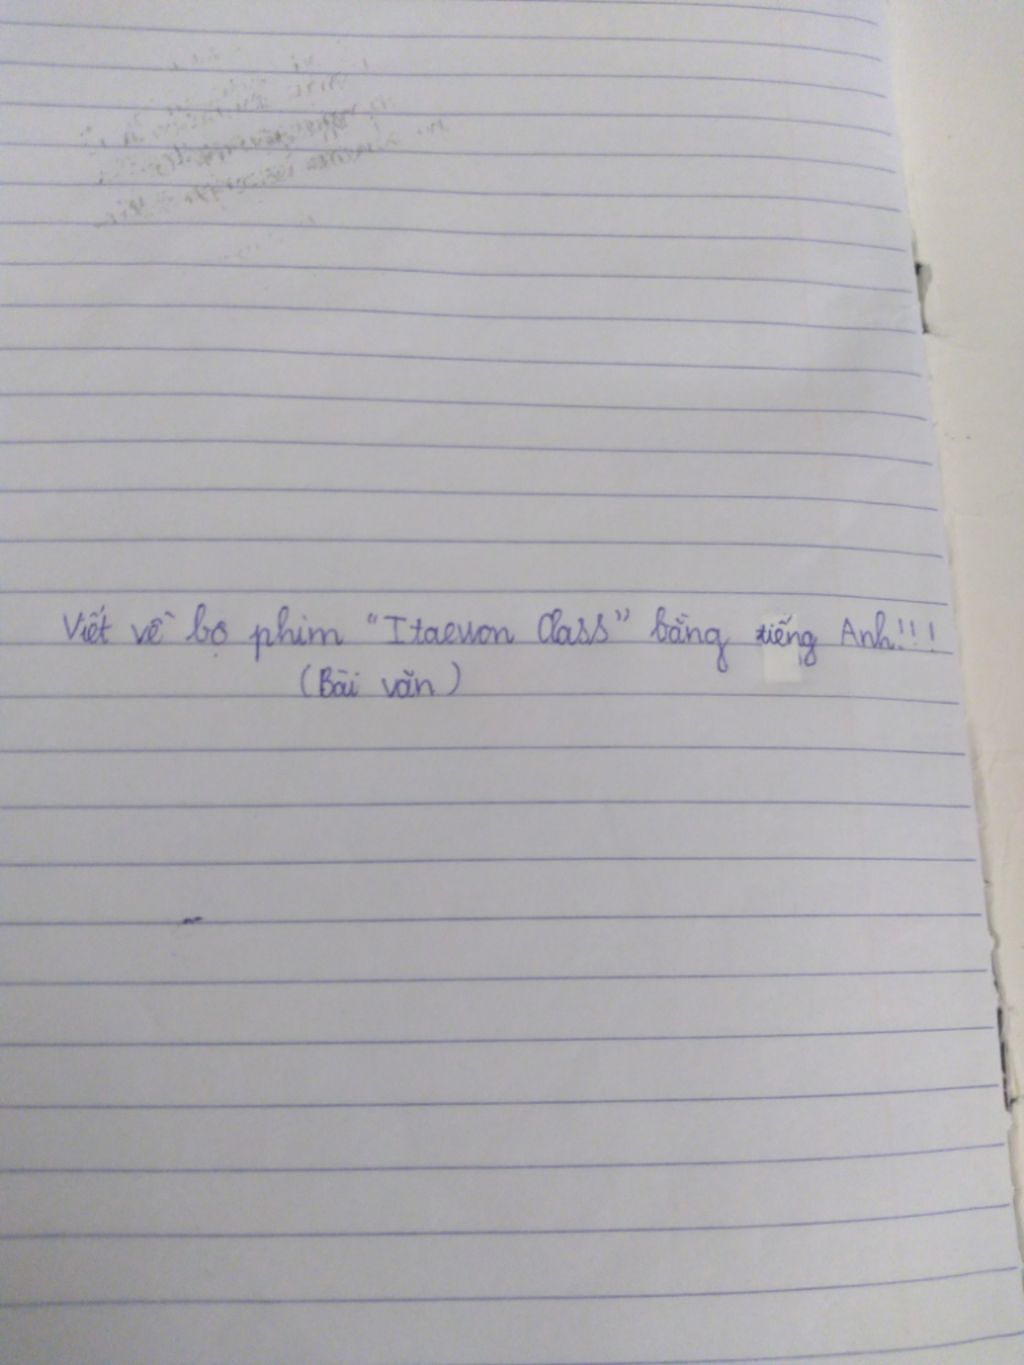 Viết về bộ phim "Itaewon Class" bằng tiếng Anh!!!
(Bài văn)